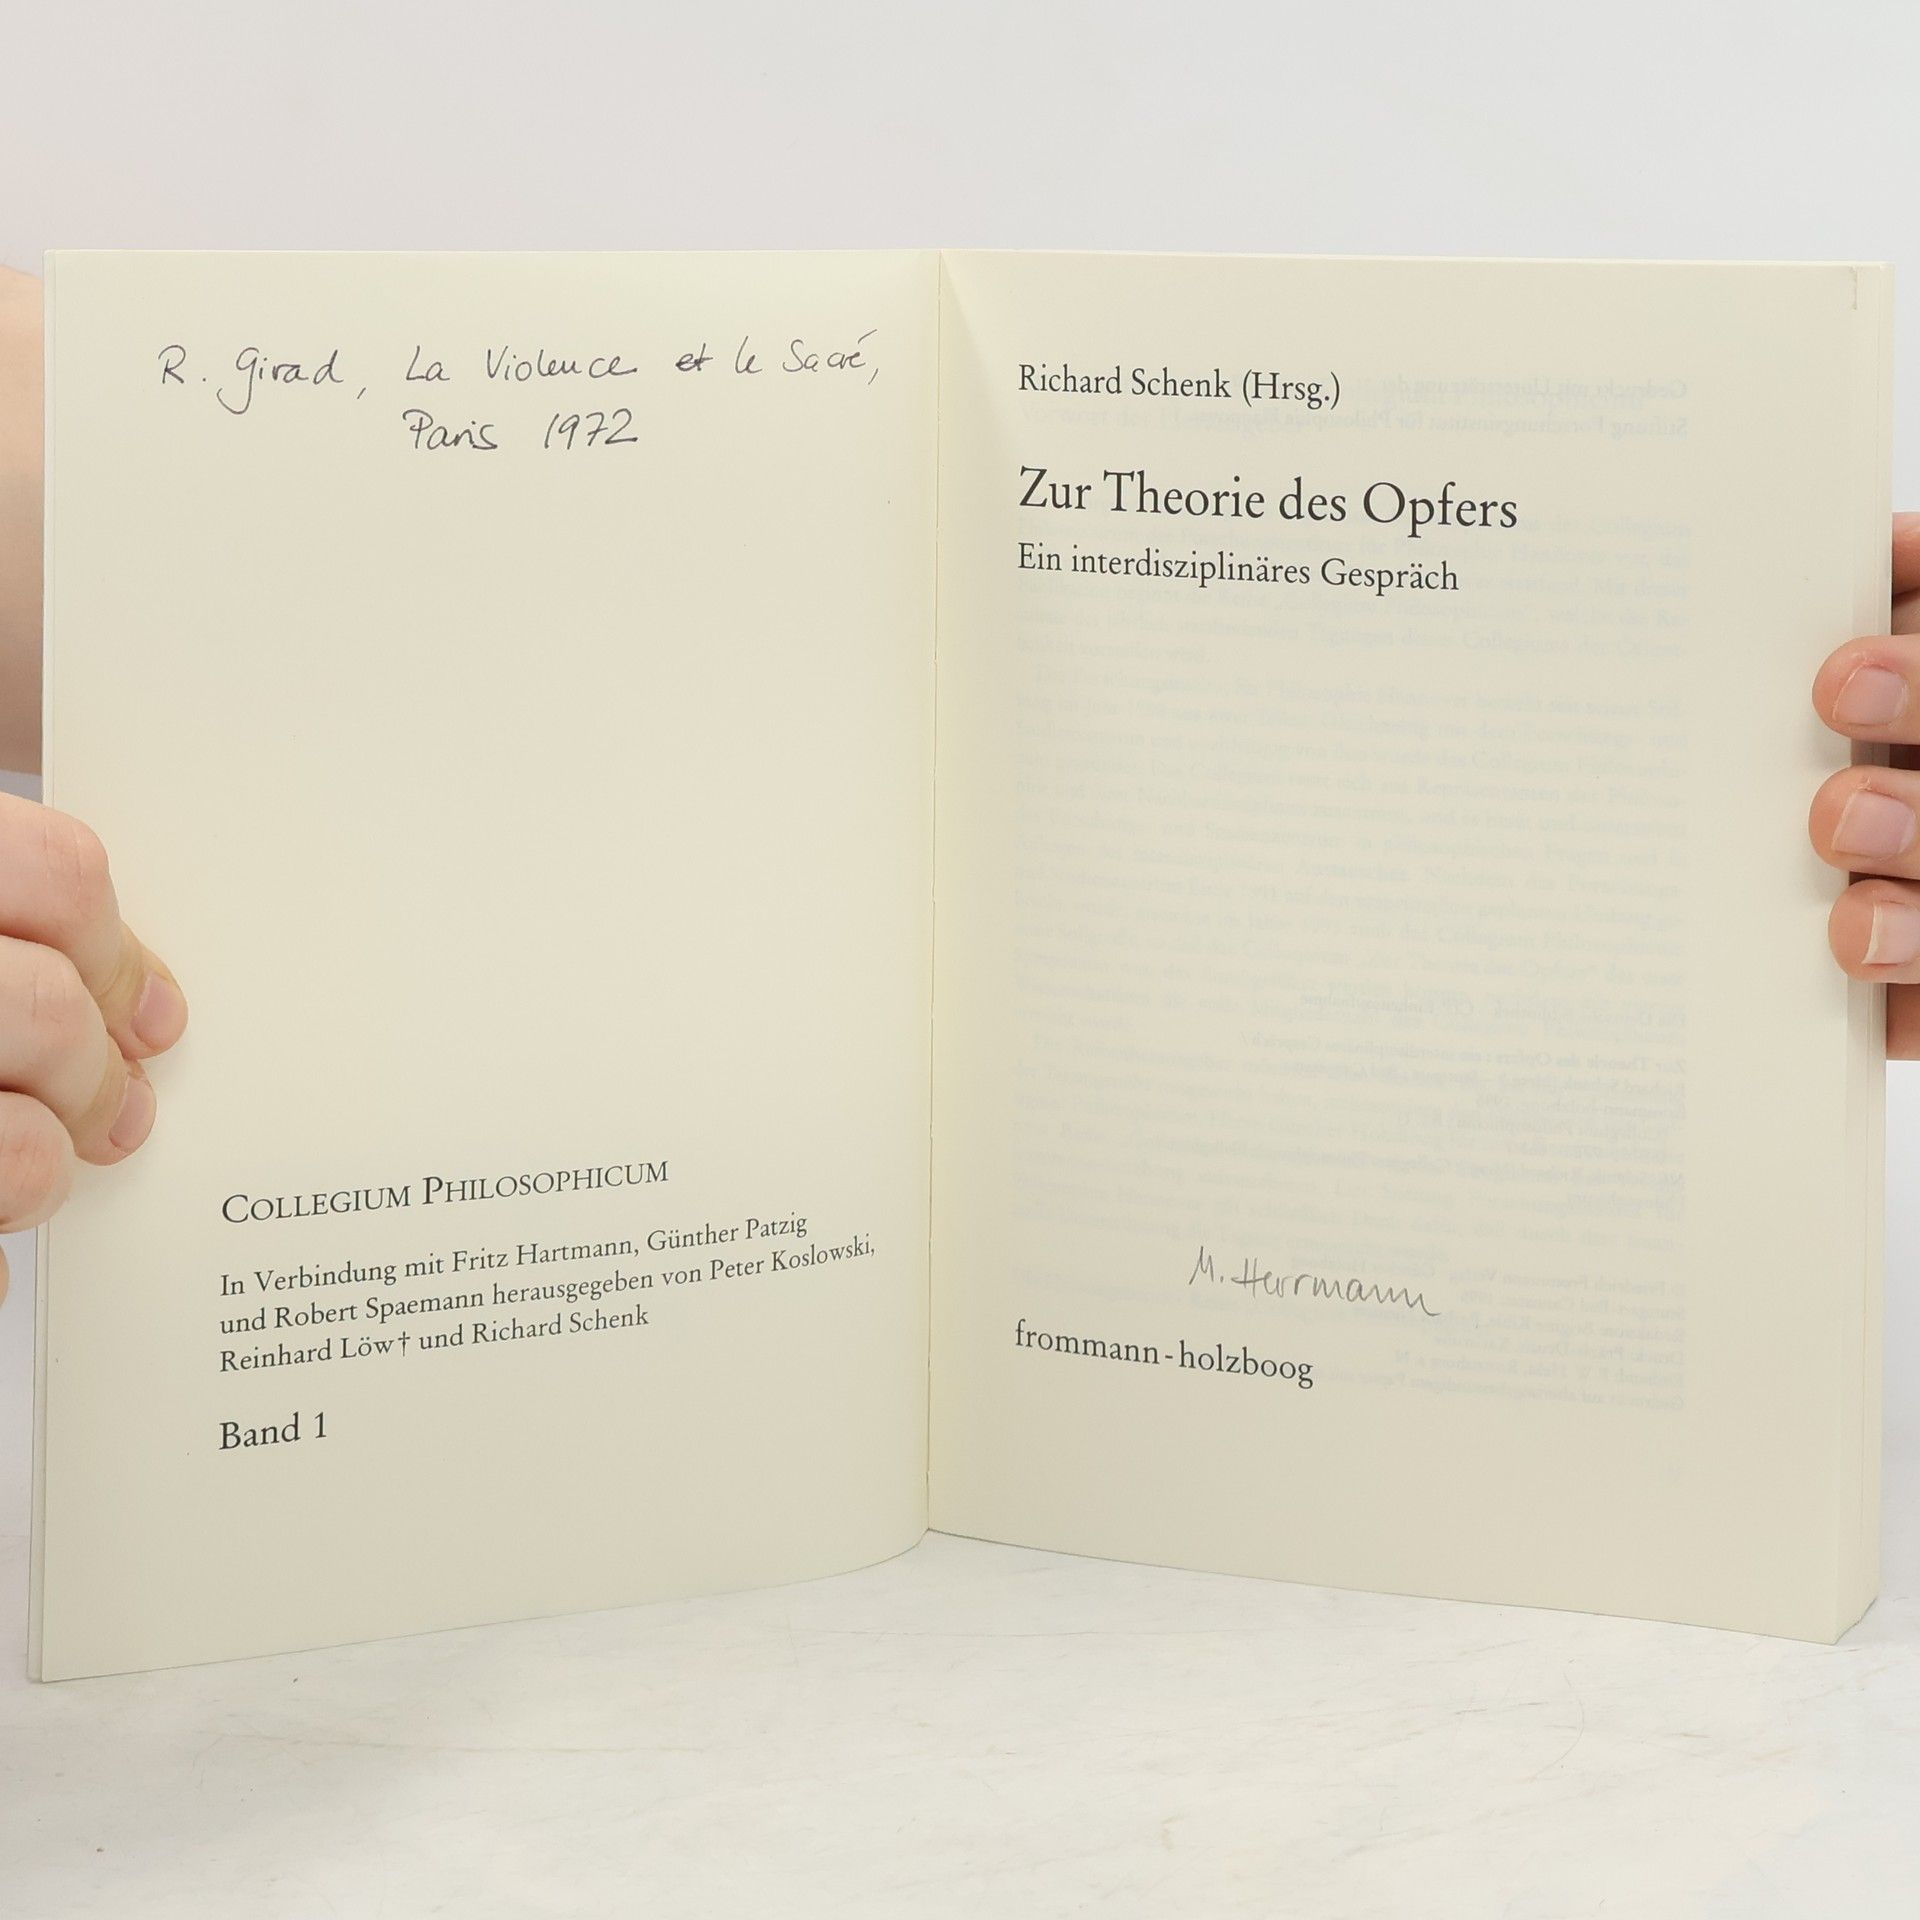 R. Girad, La Violence et le Sacré,
Paris 1972
COLLEGIUM PHILOSOPHICUM
In Verbindung mit Fritz Hartmann, Günther Patzig
und Robert Spaemann herausgegeben von Peter Koslowski,
Reinhard Löw† und Richard Schenk
Band 1
Richard Schenk (Hrsg.)
Zur Theorie des Opfers
Ein interdisziplinäres Gespräch
M. Herrmann
frommann-holzboog